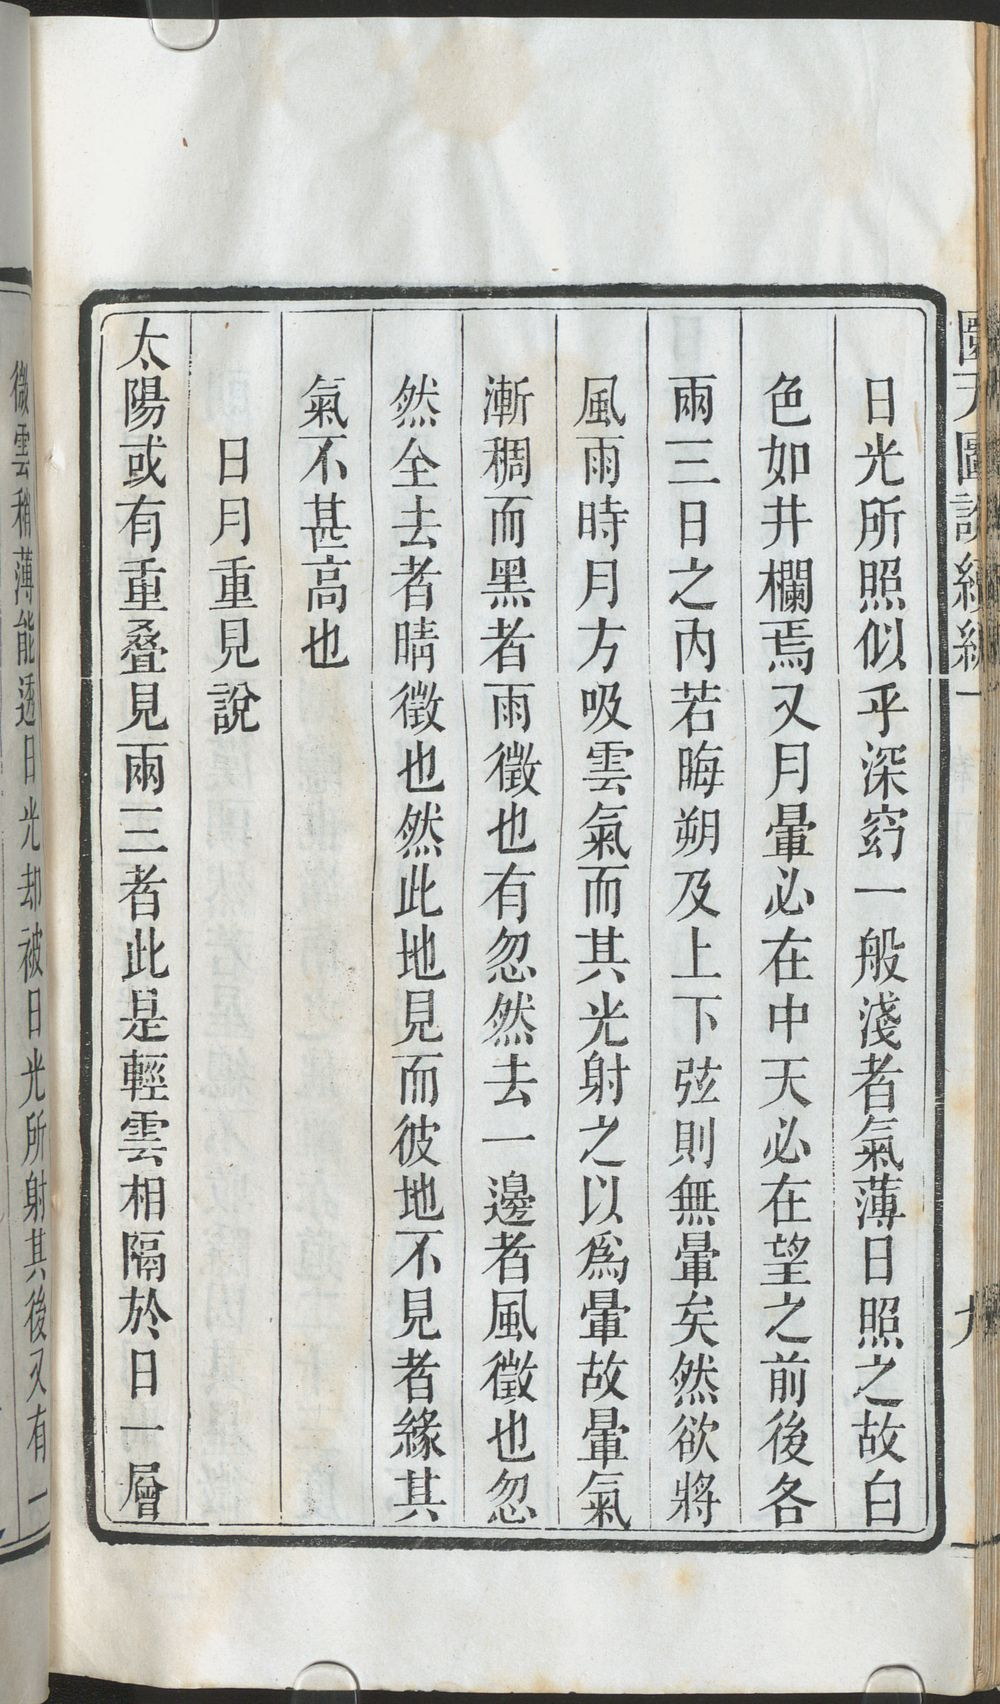 圜天圖說續編
九
日光所照似乎深窈一般淺者氣薄日照之故白
色如井欄焉又月暈必在中天必在望之前後各
兩三日之內若晦朔及上下弦則無暈矣然欲將
風雨時月方吸雲氣而其光射之以為暈故暈氣
漸稠而黑者雨徵也有忽然去一邊者風徵也忽
然全去者晴徵也然此地見而彼地不見者緣其
氣不甚高也
日月重見說
太陽或有重疊見兩三者此是輕雲相隔於日一層
微雲稍薄能透日光却被日光所射其後又有一